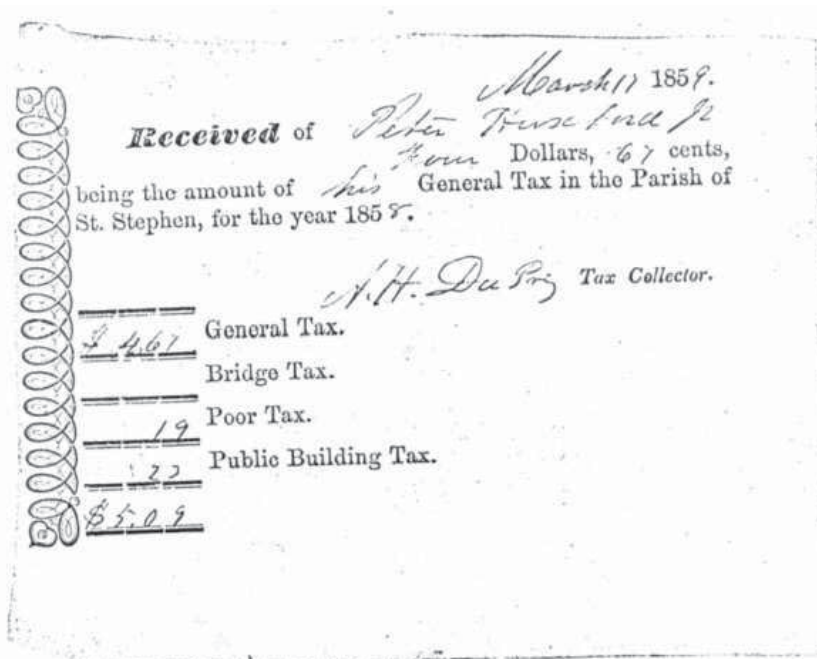 March 17 1859.
Received of Peter Jr
Four Dollars, 67 cents,
being the amount of his General Tax in the Parish of
St. Stephen, for the year 1858.
Tax Collector.
$ 4.67 General Tax.
Bridge Tax.
19 Poor Tax.
23 Public Building Tax.
$5.09